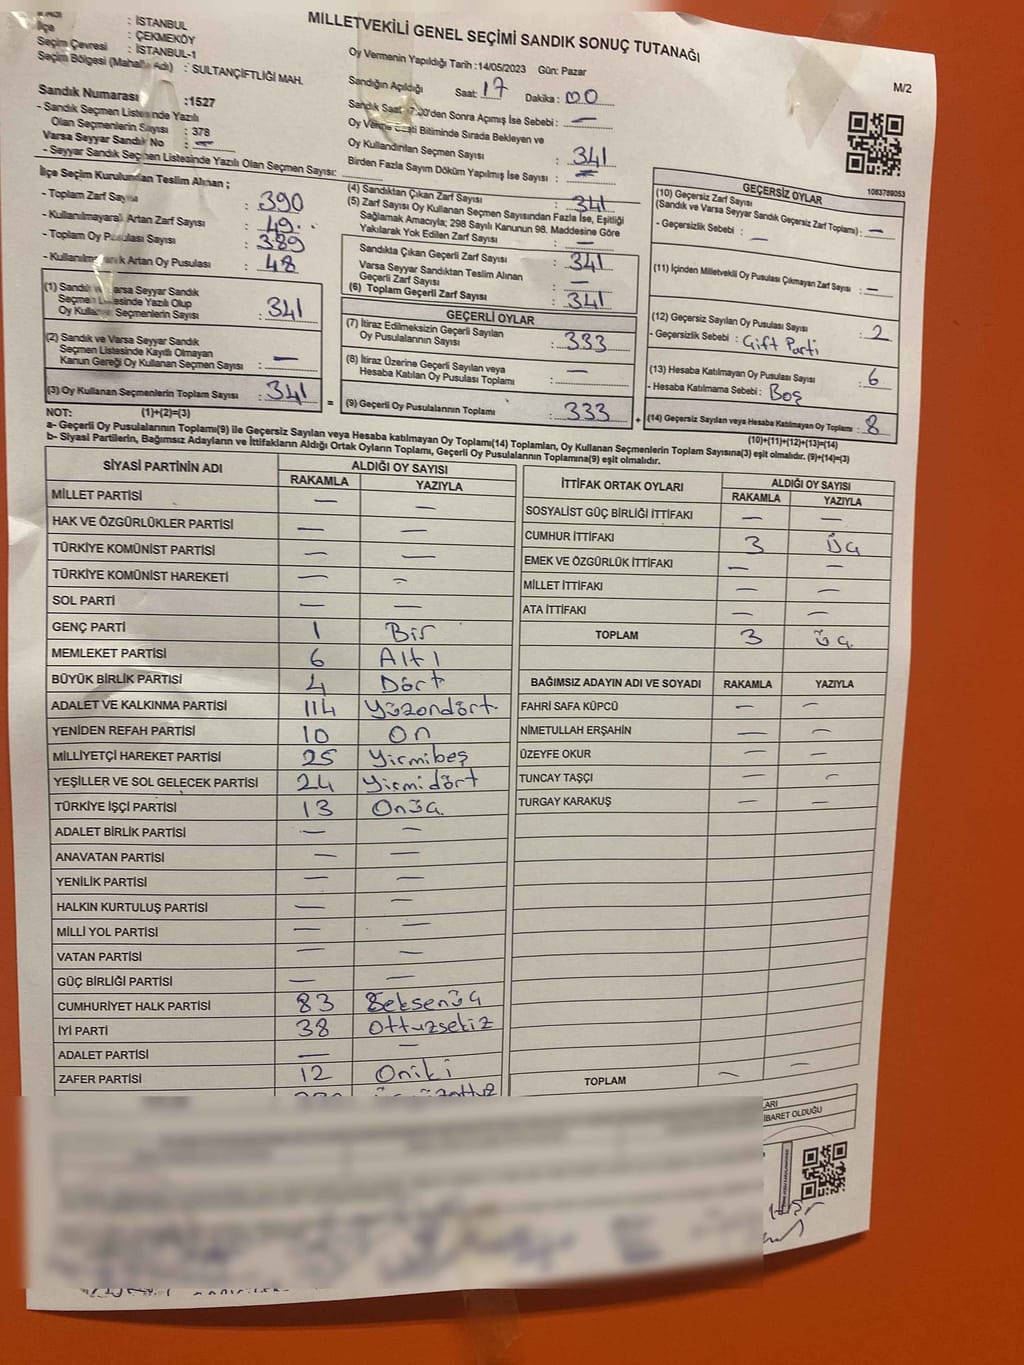 MİLLETVEKİLİ GENEL SEÇİMİ SANDIK SONUÇ TUTANAĞI
M/2
İlçe
: İSTANBUL
: ÇEKMEKÖY
Seçim Çevresi : İSTANBUL-1
Seçim Bölgesi (Mahalle Adı) : SULTANÇİFTLİĞİ MAH.
Sandık Numarası :1527
- Sandık Seçmen Listesinde Yazılı
Olan Seçmenlerin Sayısı : 378
Varsa Seyyar Sandık No : —
- Seyyar Sandık Seçmen Listesinde Yazılı Olan Seçmen Sayısı:
Oy Vermenin Yapıldığı Tarih :14/05/2023 Gün: Pazar
Sandığın Açıldığı Saat: 17 Dakika : 00
Sandık Saat 17:00'den Sonra Açımış İse Sebebi : —
Oy Verme Saati Bitiminde Sırada Bekleyen ve
Oy Kullandırılan Seçmen Sayısı : 341
Birden Fazla Sayım Döküm Yapılmış İse Sayısı : —
1083789053
İlçe Seçim Kurulundan Teslim Alınan ;
- Toplam Zarf Sayısı : 390
- Kullanılmayarak Artan Zarf Sayısı : 49
- Toplam Oy Pusulası Sayısı : 389
- Kullanılmayarak Artan Oy Pusulası : 48
(1) Sandık ve Varsa Seyyar Sandık
Seçmen Listesinde Yazılı Olup
Oy Kullanan Seçmenlerin Sayısı : 341
(2) Sandık ve Varsa Seyyar Sandık
Seçmen Listesinde Kayıtlı Olmayan
Kanun Gereği Oy Kullanan Seçmen Sayısı : —
(3) Oy Kullanan Seçmenlerin Toplam Sayısı : 341
(4) Sandıktan Çıkan Zarf Sayısı : 341
(5) Zarf Sayısı Oy Kullanan Seçmen Sayısından Fazla İse, Eşitliği
Sağlamak Amacıyla; 298 Sayılı Kanunun 98. Maddesine Göre
Yakılarak Yok Edilen Zarf Sayısı : —
Sandıkta Çıkan Geçerli Zarf Sayısı : 341
Varsa Seyyar Sandıktan Teslim Alınan
Geçerli Zarf Sayısı : —
(6) Toplam Geçerli Zarf Sayısı : 341
GEÇERLİ OYLAR
(7) İtiraz Edilmeksizin Geçerli Sayılan
Oy Pusulalarının Sayısı : 333
(8) İtiraz Üzerine Geçerli Sayılan veya
Hesaba Katılan Oy Pusulası Toplamı : —
= (9) Geçerli Oy Pusulalarının Toplamı : 333
GEÇERSİZ OYLAR
(10) Geçersiz Zarf Sayısı
(Sandık ve Varsa Seyyar Sandık Geçersiz Zarf Toplamı) : —
- Geçersizlik Sebebi : —
(11) İçinden Milletvekil Oy Pusulası Çıkmayan Zarf Sayısı : —
(12) Geçersiz Sayılan Oy Pusulası Sayısı : 2
- Geçersizlik Sebebi : Gift Parti
(13) Hesaba Katılmayan Oy Pusulası Sayısı : 6
- Hesaba Katılmama Sebebi : Boş
+ (14) Geçersiz Sayılan veya Hesaba Katılmayan Oy Toplamı : 8
NOT: (1)+(2)=(3)
(10)+(11)+(12)+(13)=(14)
a- Geçerli Oy Pusulalarının Toplamı(9) ile Geçersiz Sayılan veya Hesaba katılmayan Oy Toplamı(14) Toplamları, Oy Kullanan Seçmenlerin Toplam Sayısına(3) eşit olmalıdır. (9)+(14)=(3)
b- Siyasi Partilerin, Bağımsız Adayların ve İttifakların Aldığı Ortak Oyların Toplamı, Geçerli Oy Pusulalarının Toplamına(9) eşit olmalıdır.
SİYASİ PARTİNİN ADI ALDIĞI OY SAYISI
RAKAMLA YAZIYLA
MİLLET PARTİSİ — —
HAK VE ÖZGÜRLÜKLER PARTİSİ — —
TÜRKİYE KOMÜNİST PARTİSİ — —
TÜRKİYE KOMÜNİST HAREKETİ — —
SOL PARTİ — —
GENÇ PARTİ 1 Bir
MEMLEKET PARTİSİ 6 Altı
BÜYÜK BİRLİK PARTİSİ 4 Dört
ADALET VE KALKINMA PARTİSİ 114 Yüzondört
YENİDEN REFAH PARTİSİ 10 On
MİLLİYETÇİ HAREKET PARTİSİ 25 Yirmibeş
YEŞİLLER VE SOL GELECEK PARTİSİ 24 Yirmidört
TÜRKİYE İŞÇİ PARTİSİ 13 Onüç
ADALET BİRLİK PARTİSİ — —
ANAVATAN PARTİSİ — —
YENİLİK PARTİSİ — —
HALKIN KURTULUŞ PARTİSİ — —
MİLLİ YOL PARTİSİ — —
VATAN PARTİSİ — —
GÜÇ BİRLİĞİ PARTİSİ — —
CUMHURİYET HALK PARTİSİ 83 Seksenüç
İYİ PARTİ 38 Ottuzsekiz
ADALET PARTİSİ — —
ZAFER PARTİSİ 12 Oniki
İTTİFAK ORTAK OYLARI ALDIĞI OY SAYISI
RAKAMLA YAZIYLA
SOSYALİST GÜÇ BİRLİĞİ İTTİFAKI — —
CUMHUR İTTİFAKI 3 Üç
EMEK VE ÖZGÜRLÜK İTTİFAKI — —
MİLLET İTTİFAKI — —
ATA İTTİFAKI — —
TOPLAM 3 Üç
BAĞIMSIZ ADAYIN ADI VE SOYADI RAKAMLA YAZIYLA
FAHRİ SAFA KÜPCÜ — —
NİMETULLAH ERŞAHİN — —
ÜZEYFE OKUR — —
TUNCAY TAŞÇI — —
TURGAY KARAKUŞ — —
TOPLAM — —
ARI
İBARET OLDUĞU